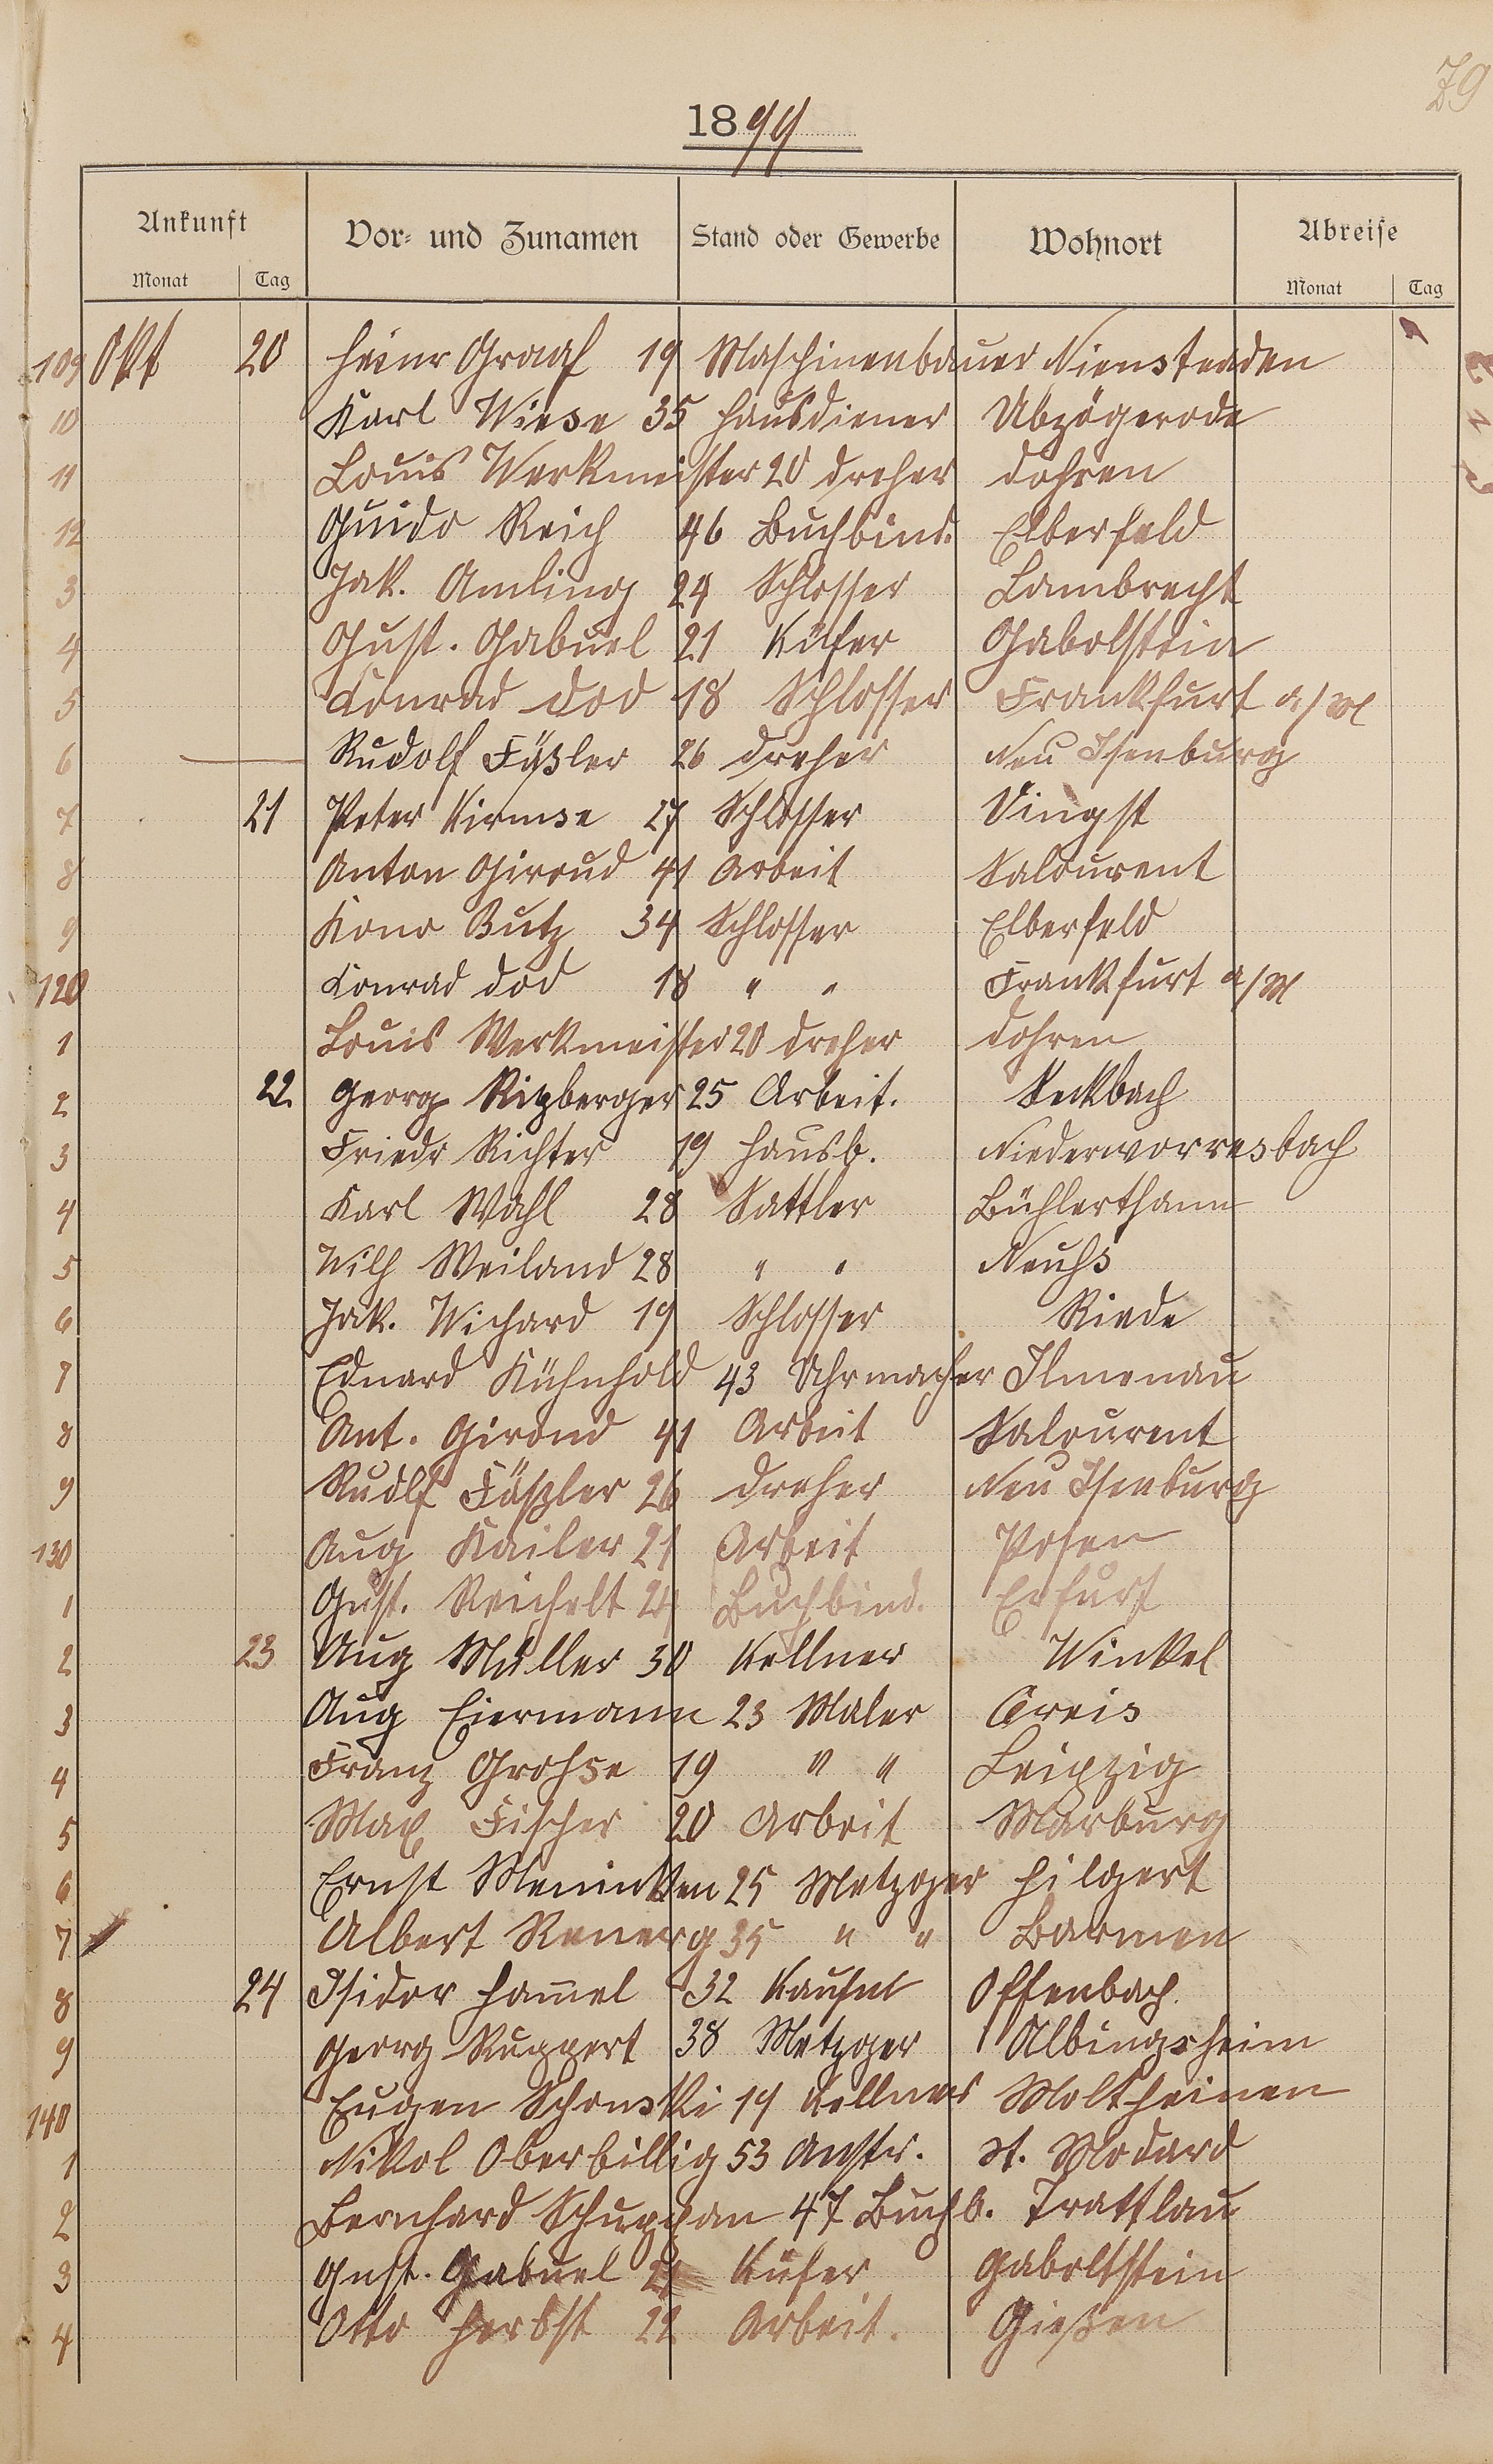 79
1899
Ankunft Vor- und Zunamen Stand oder Gewerbe Wohnort Abreise
Monat Tag Monat Tag
109 Okt 20 Heinr Graaf 19 Maschinenbauer Nienstedten
10 Karl Wiese 35 Hausdiener Abzögerode
11 Louis Werkmeister 20 Dreher Dohren
12 Guido Reich 46 Buchbind. Elberfeld
3 Jak. Amling 24 Schlosser Lambrecht
4 Gust. Gabuel 21 Küfer Gabolstein
5 Konrad Dod 18 Schlosser Frankfurt a/M
6 Rudolf Fäßler 26 Dreher Neu Isenburg
7 21 Peter Kirmse 27 Schlosser Vingst
8 Anton Giroud 41 Arbeit Salourent
9 Konr Butz 34 Schlosser Elberfeld
120 Konrad Dod 18 " " Frankfurt a/M
1 Louis Werkmeister 20 Dreher Dohren
2 22 Georg Rizberger 25 Arbeit. Seckbach
3 Friedr Richter 19 Hausb. Niederworresbach
4 Karl Wahl 28 Sattler Bühlerthann
5 Wilh Weiland 28 " " Neuhs
6 Jak. Wichard 19 Schlosser Riede
7 Eduard Kühnhold 43 Uhrmacher Ilmenau
8 Ant. Giroud 41 Arbeit Salourent
9 Rudlf Fäßler 26 Dreher Neu Isenburg
130 Aug Kailer 21 Arbeit Posen
1 Gust. Reichelt 24 Buchbind. Erfurt
2 23 Aug Müller 30 Kellner Winkel
3 Aug Eiermann 23 Maler Greis
4 Franz Grohse 19 " " Leipzig
5 Max Fischer 20 Arbeit Marburg
6 Ernst Meninken 25 Metzger Hilgert
7 Albert Renerg 35 " " Barmen
8 24 Isidor Ham̄el 32 Kaufm Offenbach
9 Georg Ruppert 38 Metzger Albingsheim
140 Eugen Schonski 19 Kellner Moltheinen
1 Nikol Oberbillig 53 Anstr. St. Medard
2 Bernhard Schuppan 47 Buchb. Trattlau
3 Gust. Gabuel 21 Küfer Gaboltstein
4 Otto Herbst 22 Arbeit. Gießen